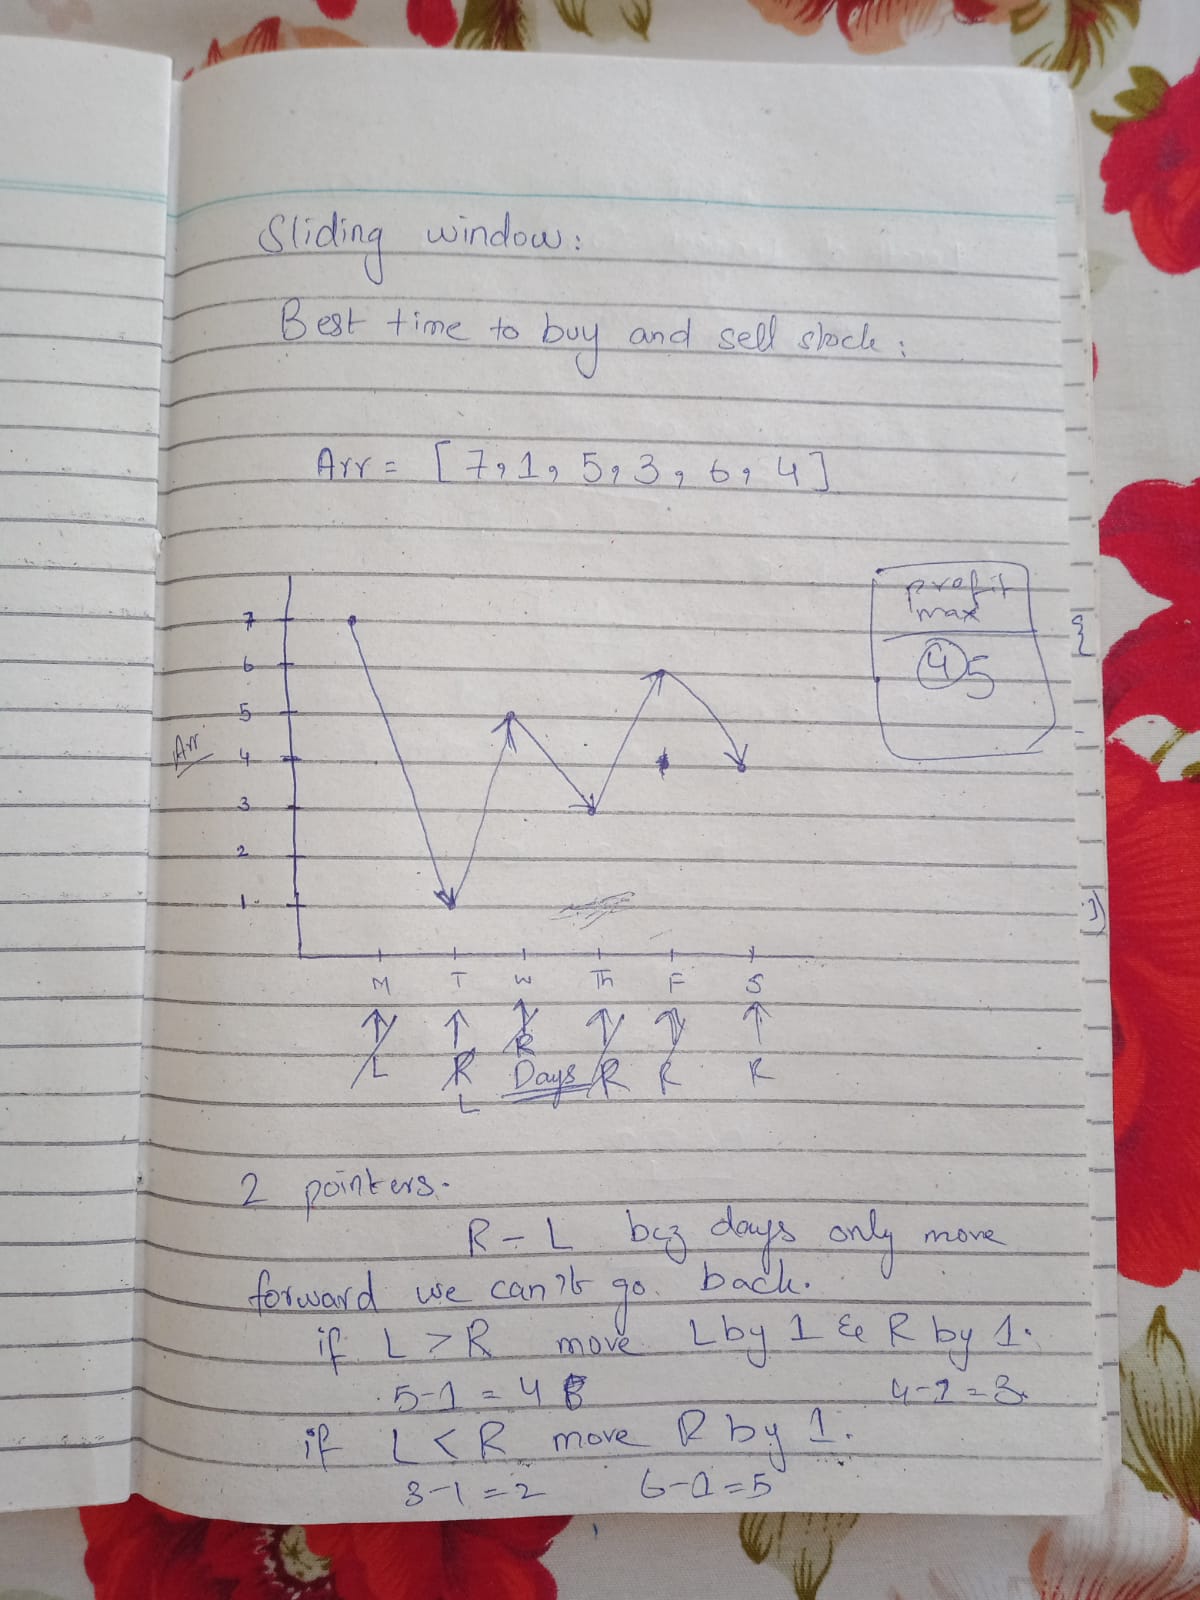 Sliding window:
Best time to buy and sell stock:
Arr = [7, 1, 5, 3, 6, 4]
profit
max
4 5
7
6
5
Arr
4
3
2
1
M T W Th F S
R
L R Days R R R
L
2 pointers.
R - L bcz days only move
forward we can't go back.
if L > R move L by 1 & R by 1.
5-1 = 4 4-1 = 3.
if L < R move R by 1.
3-1 = 2 6-1 = 5